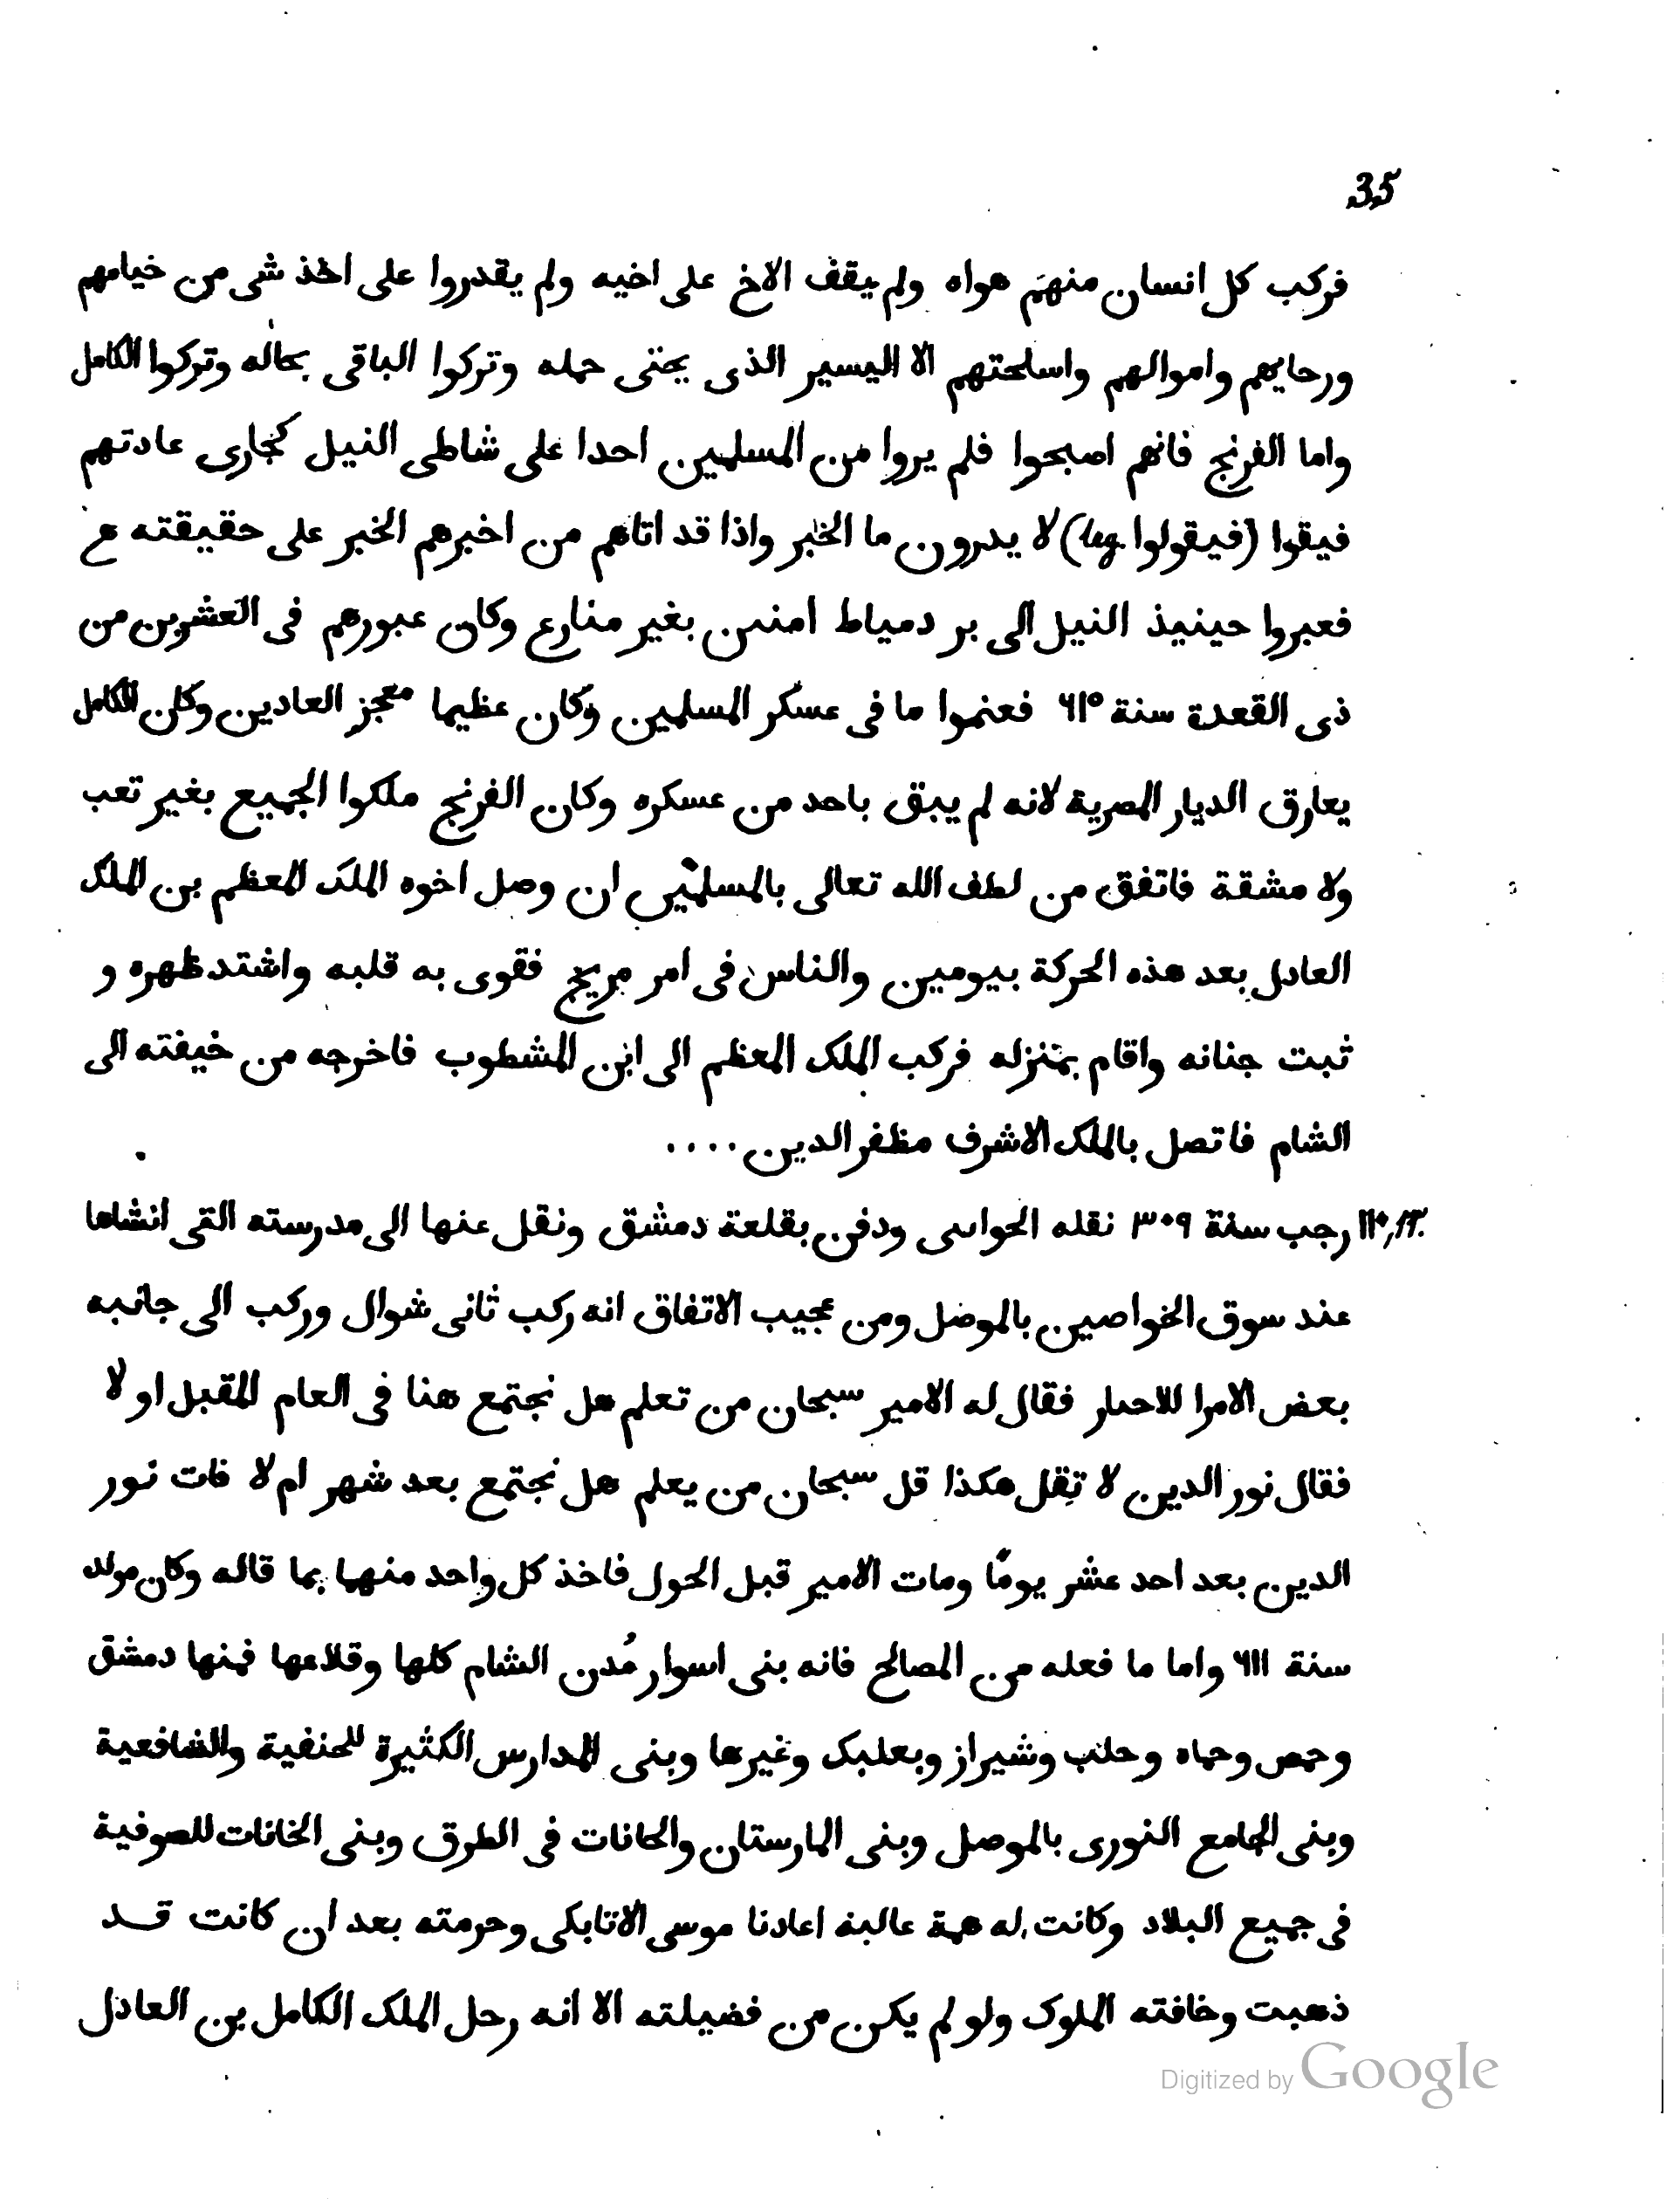 35
فركب كل انسان منهم هواه ولم يقف الاخ على اخيه ولم يقدروا على اخذ شى من خيامهم
ورحايهم واموالهم واسلحتهم الا اليسير الذى يختى حمله وتركوا الباقى بحاله وتركوا الكامل
واما الفرنج فانهم اصبحوا فلم يروا من المسلمين احدا على شاطى النيل كجارى عادتهم
فيقوا (فيقولوا leg.) لا يدرون ما الخبر واذا قد اتاهم من اخبرهم الخبر على حقيقته مح
فعبروا حينيذ النيل الى بر دمياط امنين بغير منازع وكان عبورهم فى العشرين من
ذى القعدة سنة ٦١٥ فعنموا ما فى عسكر المسلمين وكان عظيما معجز العادين وكان الكامل
يعارق الديار المصرية لانه لم يبق باحد من عسكره وكان الفرنج ملكوا الجميع بغير تعب
ولا مشقة فاتفق من لطف الله تعالى بالمسلمين ان وصل اخوه الملك المعظم بن الملك
العادل بعد هذه الحركة بيومين والناس فى امر مريج فقوى به قلبه واشتد ظهره و
ثبت جنانه واقام بمنزله فركب الملك المعظم الى ابن المشطوب فاخرجه من خيفته الى
الشام فاتصل بالملك الاشرف مظفر الدين ....
رجب سنة ٣٠٩ نقله الحواسى ودفن بقلعة دمشق ونقل عنها الى مدرسته التى انشاها
عند سوق الخواصين بالموضل ومن عجيب الاتفاق انه ركب ثانى شوال وركب الى جانبه
بعض الامرا للاحىار فقال له الامير سبحان من تعلم هل نجتمع هنا فى العام المقبل او لا
فقال نور الدين لا تقل هكذا قل سبحان من يعلم هل نجتمع بعد شهر ام لا فات نور
الدين بعد احد عشر يومًا ومات الامير قبل الحول فاخذ كل واحد منهما بما قاله وكان مولد
سنة ٦١١ واما ما فعله من المصالح فانه بنى اسوار مُدن الشام كلها وقلاعها فمنها دمشق
وحمص وحماه وحلب وشيراز وبعلبك وغيرها وبنى المدارس الكثيرة للحنفية والشافعية
وبنى الجامع النورى بالموصل وبنى المارستان والحانات فى الطرق وبنى الخانات للصوفية
فى جميع البلاد وكانت له همة عالبنه اعادنا موسى الاتابكى وحرمته بعد ان كانت قد
ذهبت وخافته الملوك ولو لم يكن من فضيلته الا انه رحل الملك الكامل بن العادل
Digitized by Google